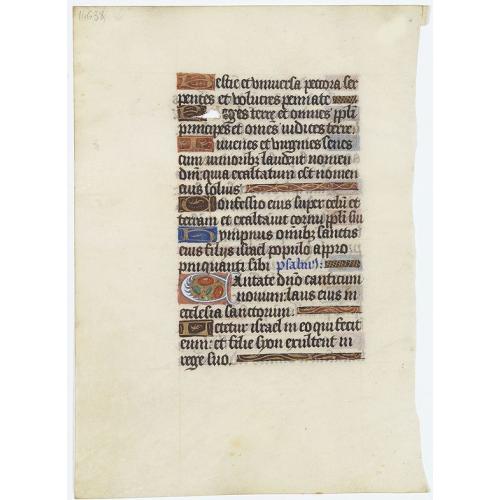 Bestie et vniuersa pecora ser
pentes et volucres pennate
Reges terre et omnes ppli
principes et omēs iudices terre
Iuuenes et virgines senes
cum iunioribꝫ laudent nomen
dm̄ quia exaltatum est nomen
eius solius
Confessio eius super celū et
terram et exaltauit cornu ppli sui
Ympnus omnibꝫ sanctis
eius filijs israel populo appro
pinquanti sibi psalmꝰ:
Cantate dn̄o canticum
nouum: laus eius in
ecclesia sanctorum
Letetur israel in eo qui fecit
eum: et filie syon exultent in
rege suo